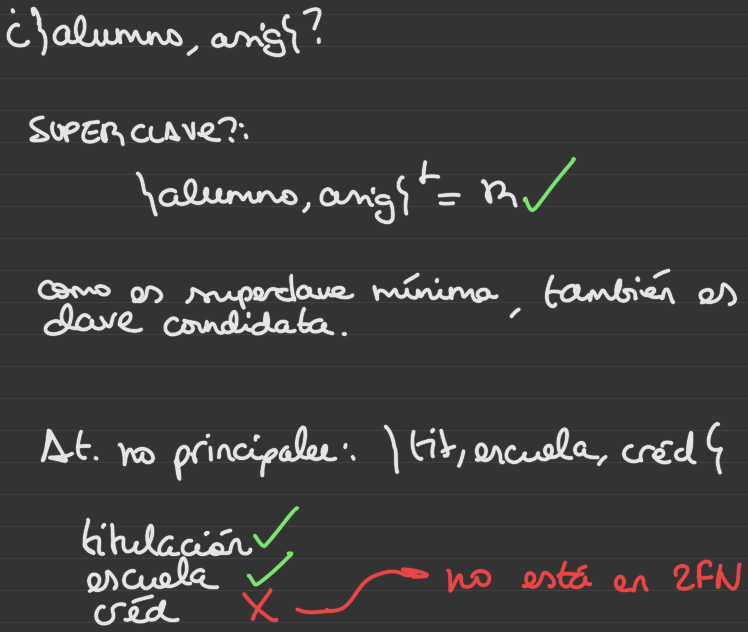 ¿{alumno, asig}?
SUPERCLAVE?:
{alumno, asig}+ = R ✓
como es superclave mínima, también es
clave candidata.
At. no principales: {tit, escuela, créd}
titulación ✓
escuela ✓
créd X → no está en 2FN